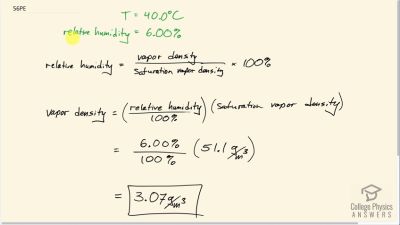 56PE
T = 40.0°C
relative humidity = 6.00%
relative humidity = vapor density / saturation vapor density × 100%
vapor density = (relative humidity / 100%) (saturation vapor density)
= 6.00% / 100% (51.1 g/m³)
= 3.07 g/m³
College Physics
ANSWERS